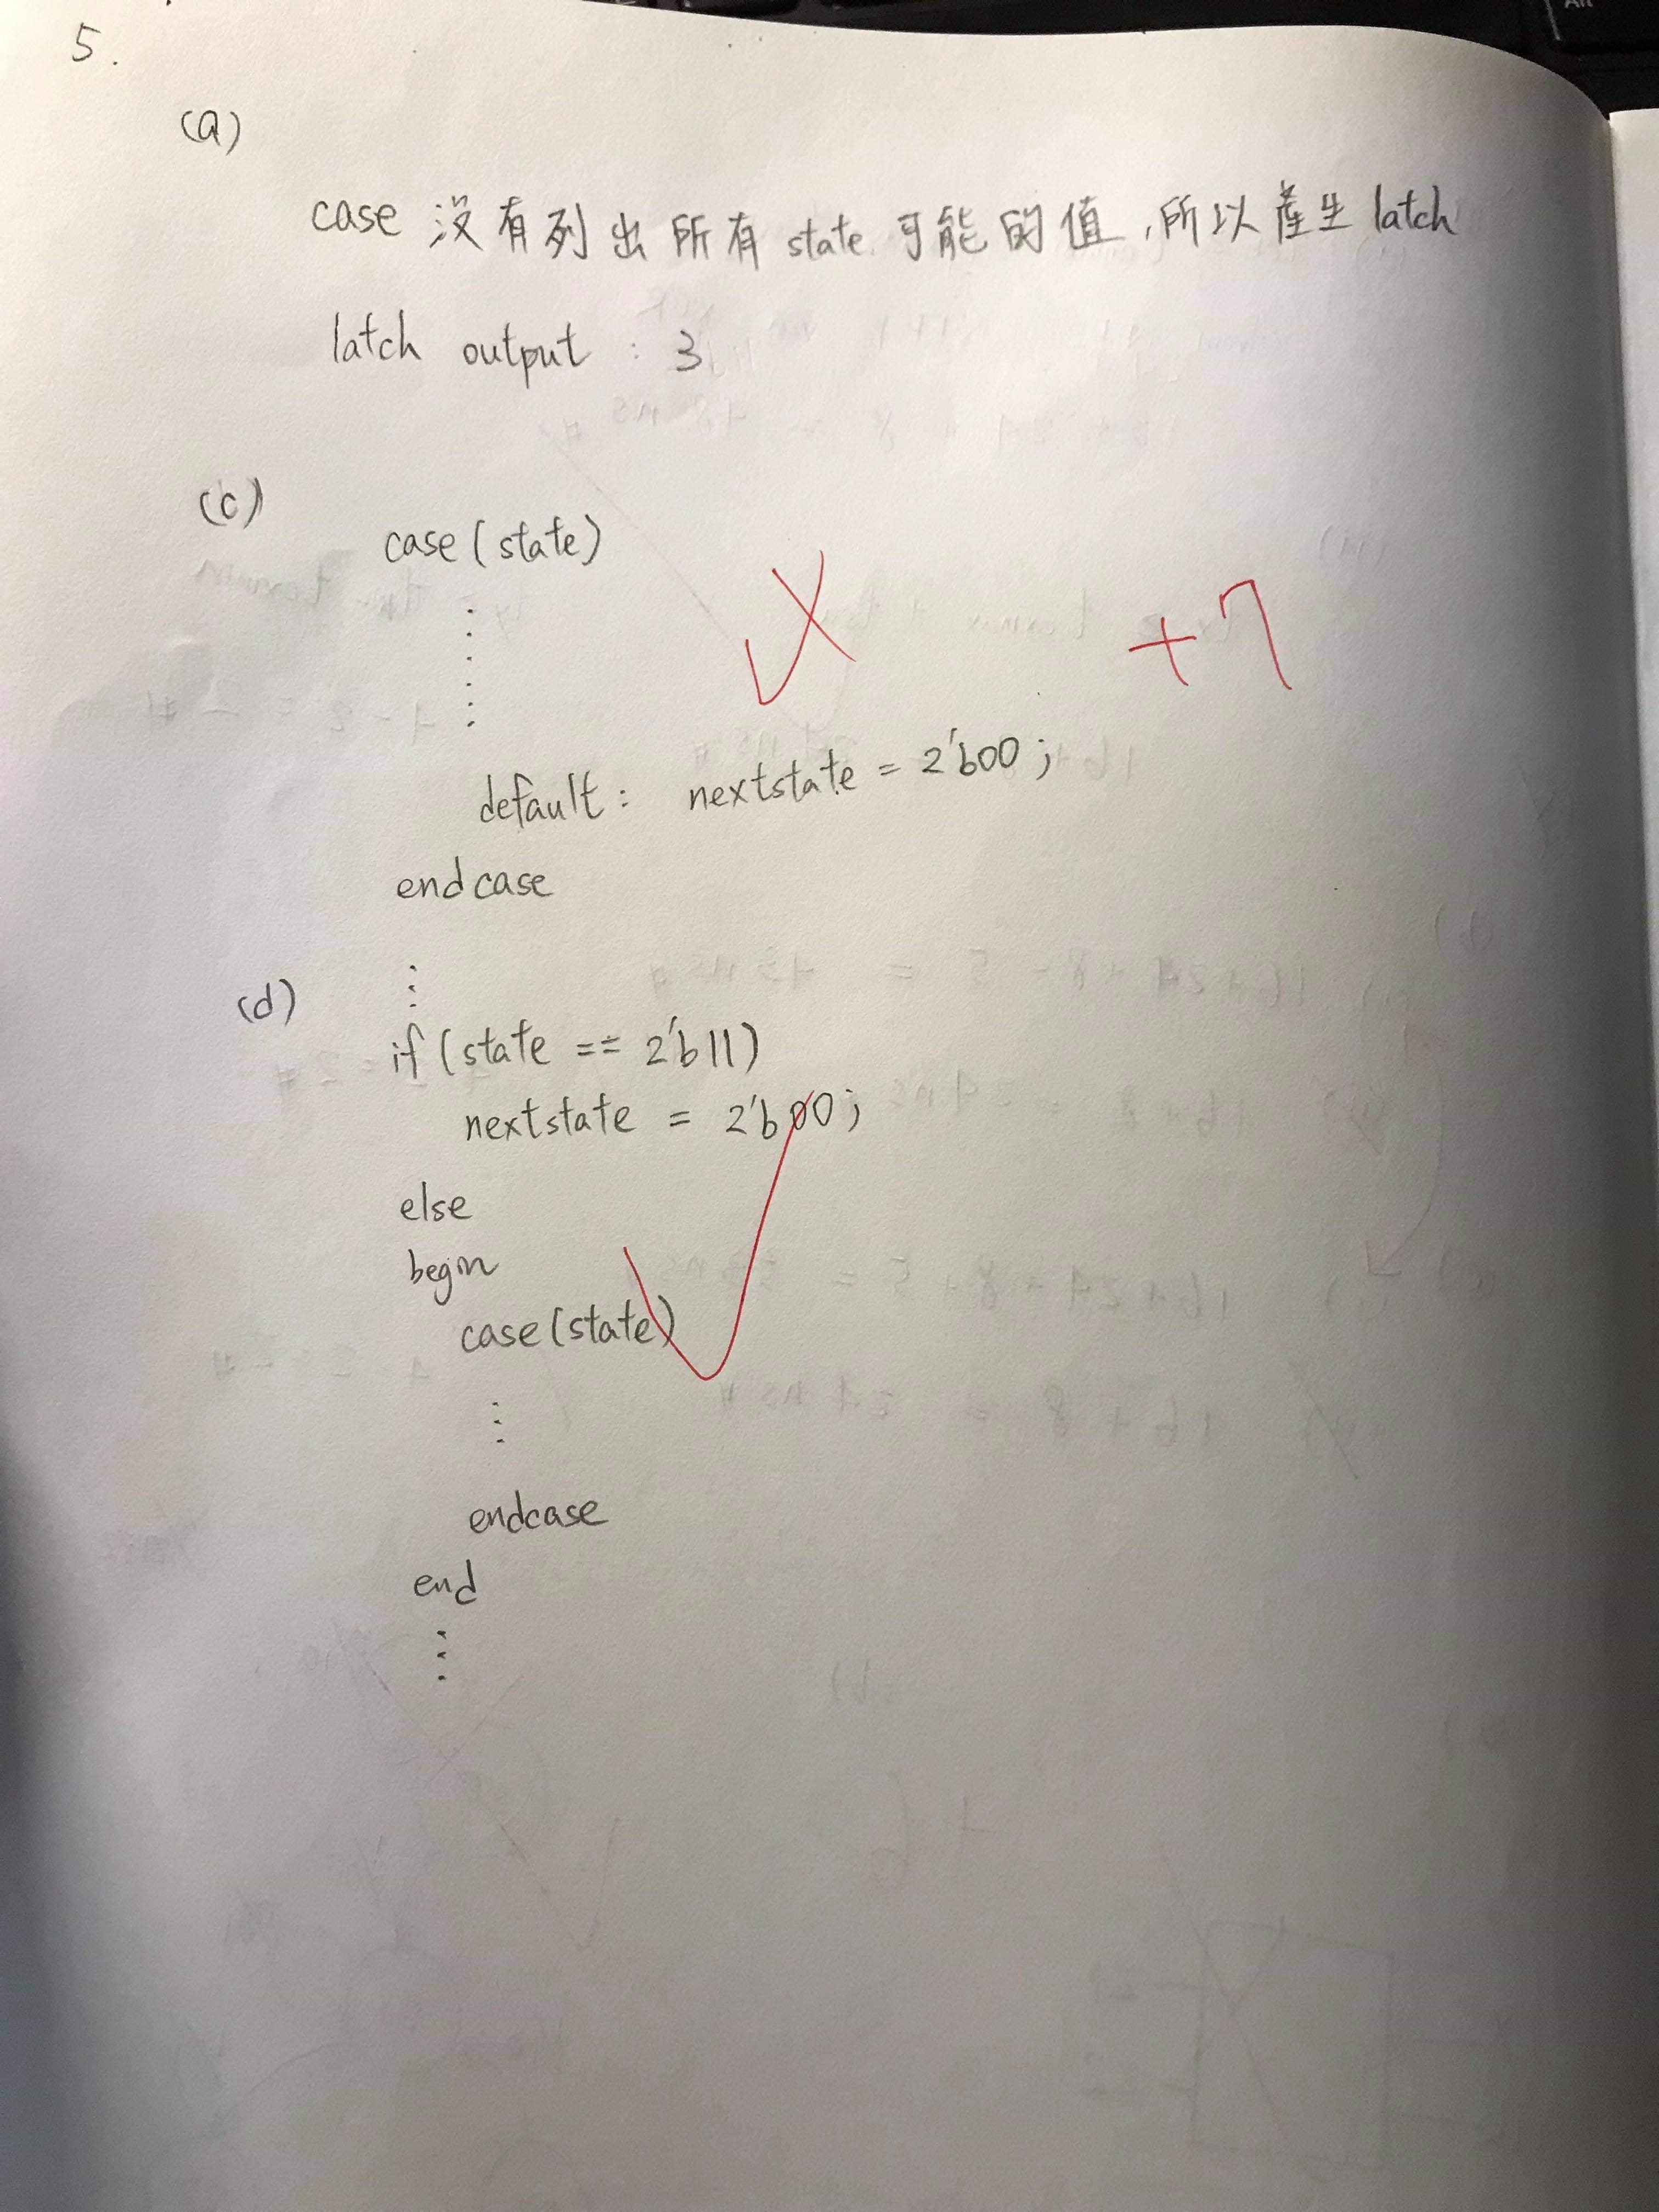 5.
(a)
case 沒有列出所有 state 可能的值,所以產生 latch
latch output : 3
(c)
case(state)
+7
default: nextstate = 2'b00;
endcase
(d)
if(state == 2'b11)
nextstate = 2'b00;
else
begin
case(state)
endcase
end